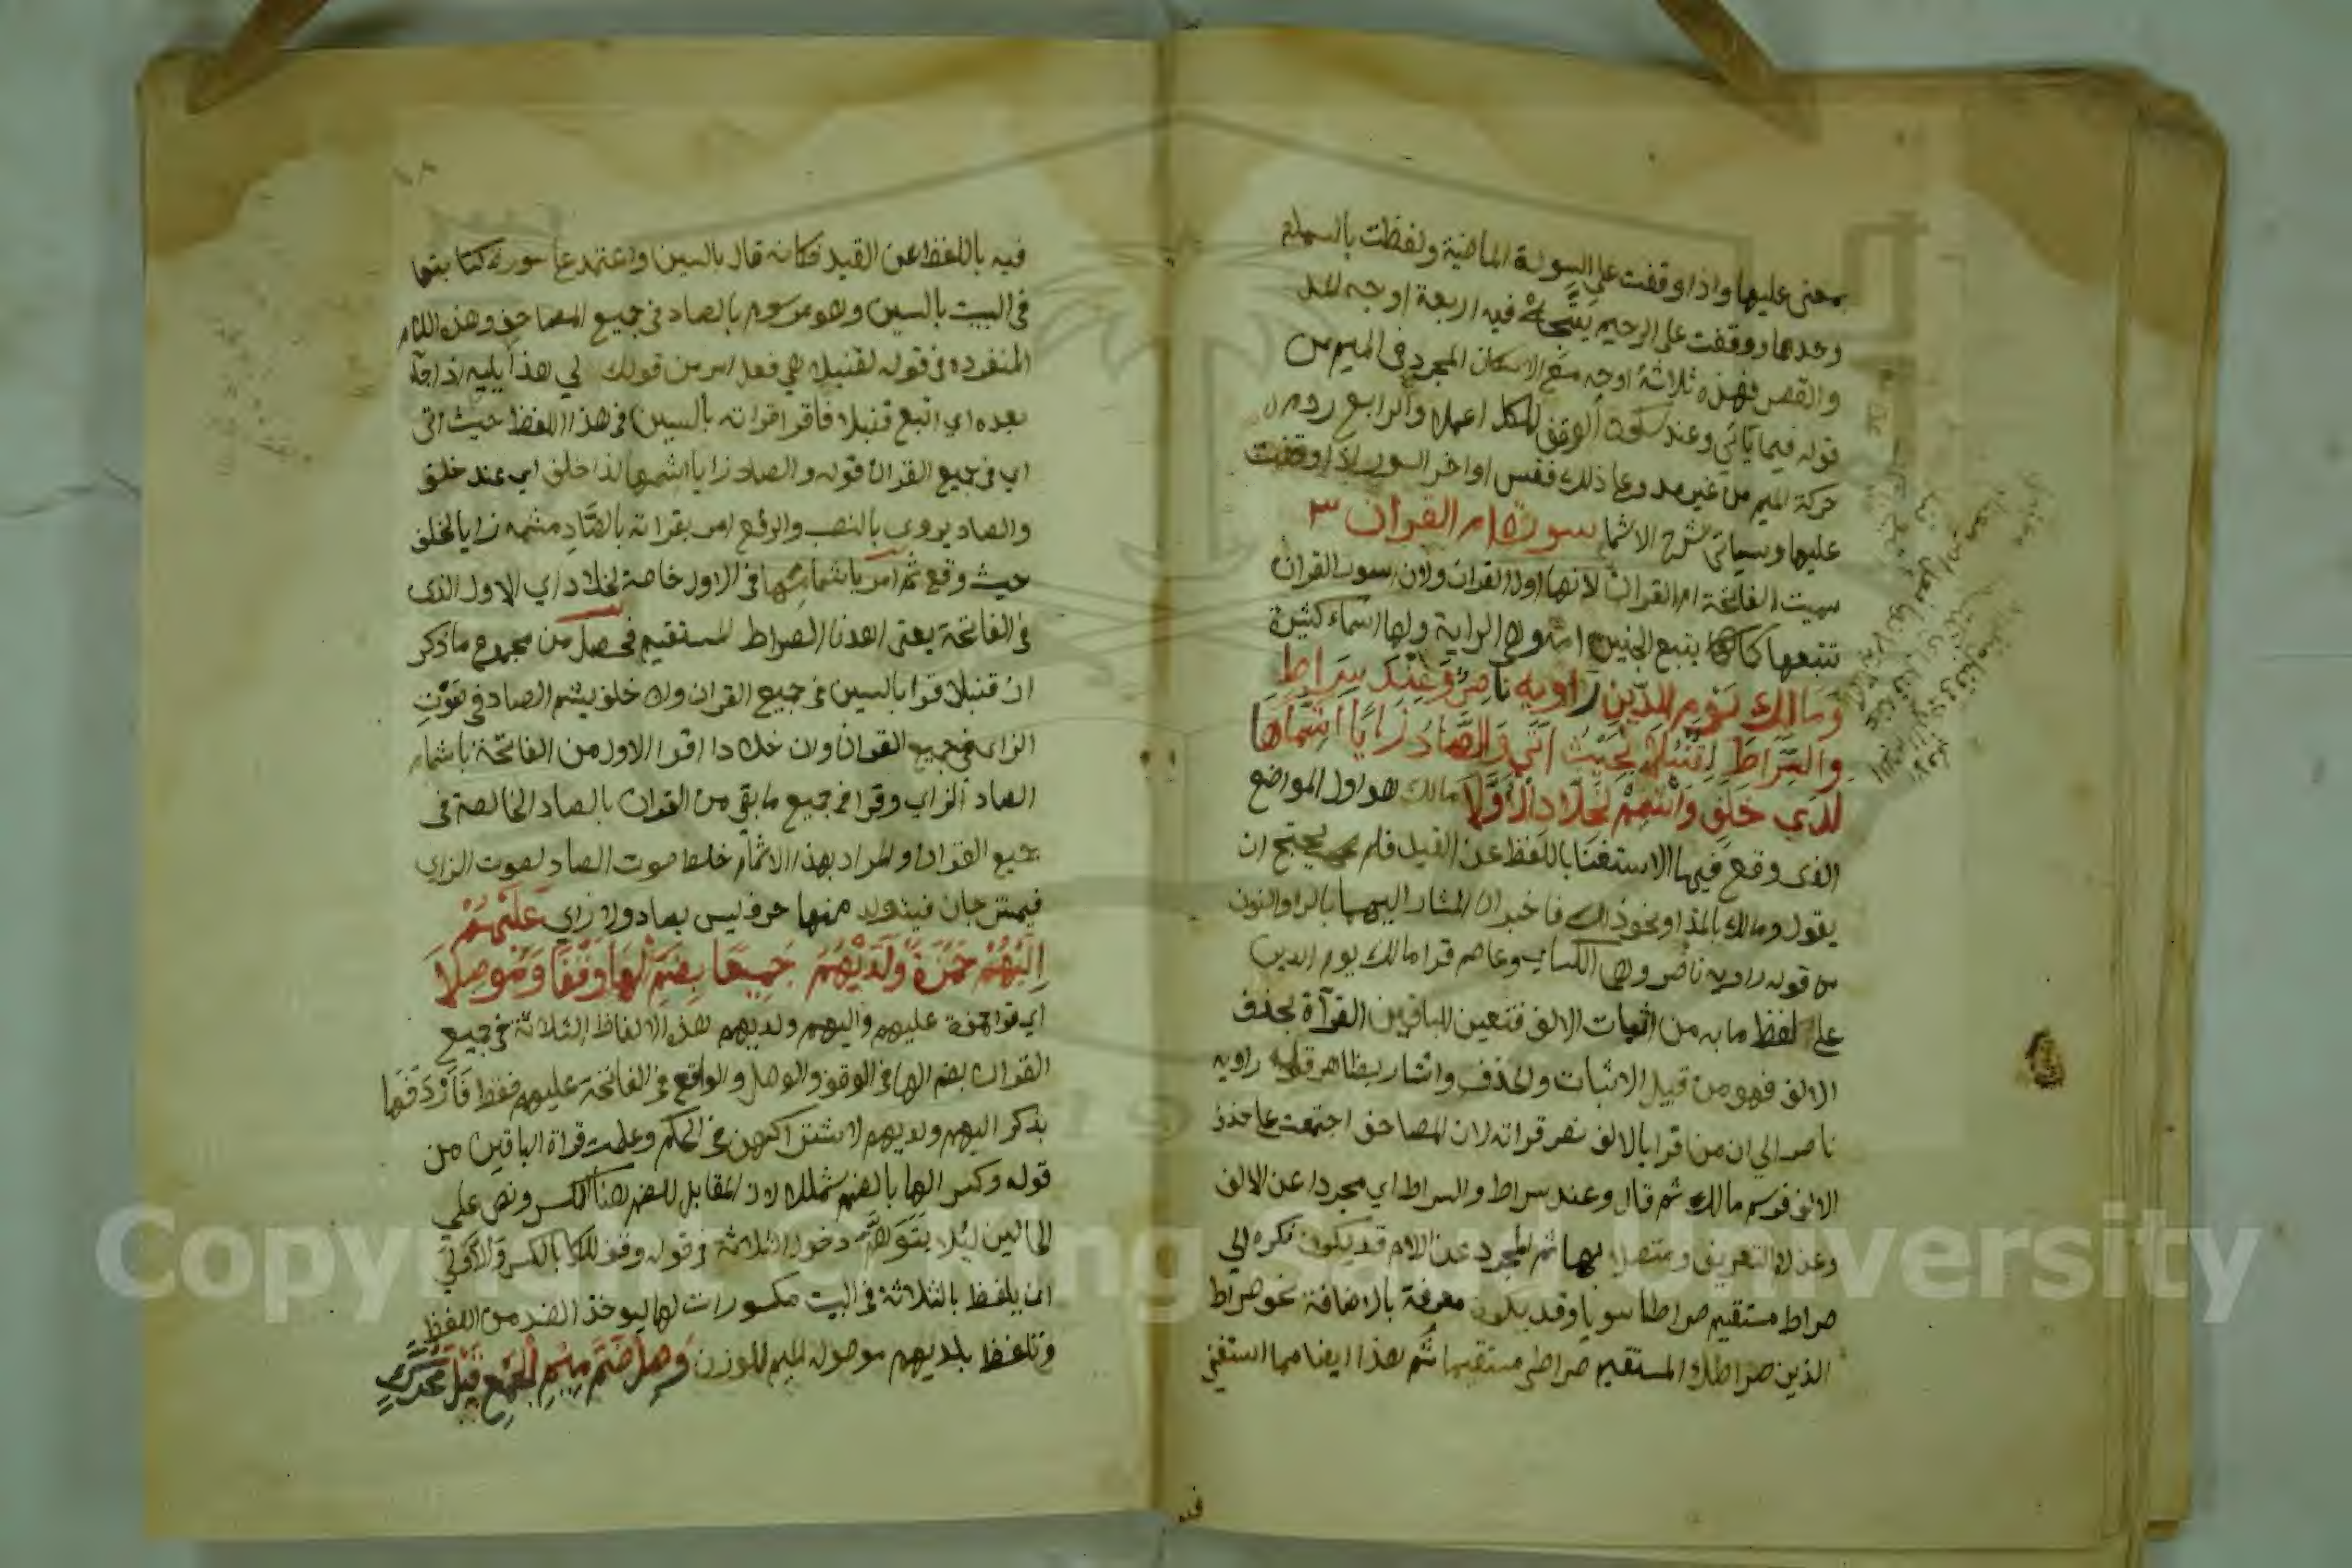 بمعنى عليها واذا وقفت علي السورة الماضية ولفظت بالبسملة
وحدها ووقفت على الرحيم يتجاه فيه اربعة اوجه المد
والقصر فهذه ثلاثة اوجه مع الاسكان المجرد في الميم من
قوله فيما ياتي وعند سكون الوقف للكل اعملا والرابع روم
حركة الميم من غير مد وعلي ذلك فقس اواخر السور اذا وقفت
عليها وسياتي شرح الاشمام سورة ام القران ٣
سميت الفاتحة ام القران لانها اول القران ولان سور القران
تتبعها كما يتبع الجيش امه وهي الراية ولها اسماء كثيرة
وَمَالِكِ يَوْمِ الدِّينِ رَاوِيهِ نَاصِرٌ وَعِنْدَ سِرَاطِ
وَالسِّرَاطَ لِقُنْبُلَا بِحَيْثُ اَتَى وَالصَّادُ زَايًا اشِمَّهَا
لَدَى خَلَفٍ وَاشْمِمْ لِخَلَّادٍ الْاَوَّلَا مالك هو اول المواضع
الذى وقع فيها الاستغنا باللفظ عن القيد فلم يحتج ان
يقول ومالك بالمد او نحو ذلك فاخبر ان المشار اليهما بالرا والنون
من قوله راويه ناصر وهما الكسايى وعاصم قرا مالك يوم الدين
على لفظ ما به من اثبات الالف فتعين للباقين القرآة بحذف
الالف فهو من قبيل الاثبات والحذف واشار بظاهر قوله راويه
ناصر الي ان من قرا بالالف نصر قراته لان المصاحف اجتمعت علي حذف
الالف فرسم مالك ثم قال وعند سراط والسراط اي مجردا عن الالف
وعن لام التعريف ومتصلا بها ثم المجرد عن اللام قد يكون نكره الي
صراط مستقيم صراطا سويا وقد يكون معرفة بالاضافة نحو صراط
الذين صراطك المستقيم صراطى مستقيما ثم هذا ايضا مما استغني
فيه باللفظ عن القيد فكانه قال بالسين واعتمد علي صورة كتابتها
فى البيت بالسين وهو مرسوم بالصاد فى جميع المصاحف وهذه اللام
المنفرده فى قوله لقنبلا هي فعل امر من قولك لي هذا يليه اذا جآ
بعده اي اتبع قنبلا فاقرا قراته بالسين فى هذا اللفظ حيث اتى
اي فى جميع القران قوله والصاد زايا اشمها لدا خلف اي عند خلف
والصاد يروى بالنصب والرفع امر بقراته بالصَّاد مشمه زايا لخلف
حيث وقع ثم امر باشمامها فى الاول خاصة لخلاد اي الاول الذى
فى الفاتحة يعنى اهدنا الصراط المستقيم فحصل من مجموع ما ذكر
ان قنبلا قرا بالسين فى جميع القران وان خلف يشم الصاد في صَوْتِ
الزاى فى جميع القران وان خلادا اقرا الاول من الفاتحة باشمام
الصاد الزاي وقرا فى جميع ما بقى من القران بالصاد الخالصة فى
جميع القران والمراد بهذا الاشمام خلط صوت الصاد لصوت الزاى
فيمتزجان فيتولد منها حرف ليس بصاد ولا زاي عَلَيْهُمْ
اِلَيْهُمْ حَمْزَةٌ وَلَدَيْهُمُ جَمِيعًا بِضَمِّ الْهَا وَقْفًا وَمَوْصِلَا
اي قرا حمزة عليهم واليهم ولديهم هذه الالفاظ الثلاثة فى جميع
القران بضم الها فى الوقف والوصل والواقع فى الفاتحة عليهم فقط فَاَرْدَفَهَا
بذكر اليهم ولديهم لاشتراكهن فى الحكم وعلمت قراة الباقين من
قوله وكسر الها بالضم شمللا لان المقابل للضم هنا الكسر ونص على
الحالين ليلا يَتَوَهَّم دخول الثلاثة فى قوله وقف للكل بالكسر والاولى
ان يلفظ بالثلاثة فى البيت مكسورات لها ليوخذ الضد من اللفظ
وتلفظ بلديهم موصولة الميم للوزن وَصِلْ ضَمَّ مِيْمِ الْجَمْعِ قَبْلَ مُحَرَّكٍ